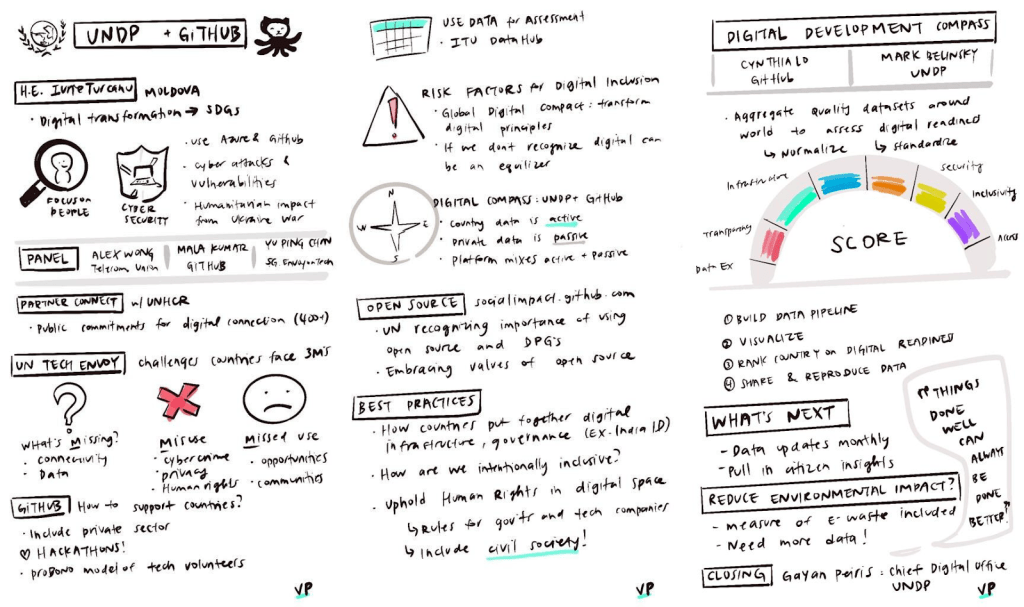 UNDP + GITHUB
H.E. Iurie Turcanu MOLDOVA
· Digital transformation → SDGs
FOCUS ON
PEOPLE
CYBER
SECURITY
· use Azure & Github
· cyber attacks &
vulnerabilities
· Humanitarian impact
from Ukraine War
PANEL
ALEX WONG
Telecom Union
MALA KUMAR
GITHUB
YU PING CHAN
SG Envoy on Tech
PARTNER CONNECT w/ UNHCR
· Public commitments for digital connection (400+)
UN TECH ENVOY challenges countries face 3M's
WHAT'S Missing?
· connectivity
· Data
Misuse
· cybercrime
· privacy
· Human rights
Missed use
· opportunities
· communities
GITHUB How to support countries?
· Include private sector
♡ HACKATHONS!
· proBONO model of tech volunteers
VP
USE DATA for Assessment
· ITU DataHub
RISK FACTORS for Digital Inclusion
· Global Digital Compact: transform
digital principles
· If we dont recognize digital can
be an equilizer
N
W
E
S
DIGITAL COMPASS: UNDP + GitHub
· Country data is active
· Private data is passive
· Platform mixes active + passive
OPEN SOURCE socialimpact.github.com
· UN recognizing importance of using
open source and DPG's
· Embracing values of open source
BEST PRACTICES
· How countries put together digital
infrastructure, governance (Ex. India ID)
· How are we intentionally inclusive?
· Uphold Human Rights in digital space
↳ Rules for gov'ts and tech companies
↳ Include civil society!
VP
DIGITAL DEVELOPMENT COMPASS
CYNTHIA LO
GitHub
MARK BELINSKY
UNDP
· Aggregate quality datasets around
world to assess digital readines
↳ Normalize ↳ standardize
Data Ex
Transparency
Infrastructure
Security
Inclusivity
Access
SCORE
① BUILD DATA PIPELINE
② VISUALIZE
③ RANK COUNTRY ON DIGITAL READINESS
④ SHARE & REPRODUCE DATA
WHAT'S NEXT
- Data updates monthly
- Pull in citizen insights
REDUCE ENVIRONMENTAL IMPACT?
- measure of E-waste included
- Need more data!
"THINGS
DONE
WELL
CAN
ALWAYS
BE
DONE
BETTER!"
CLOSING Gayan Peiris: Chief Digital Office
UNDP
VP